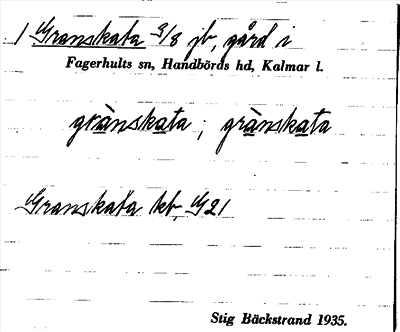 1 Granskata 3/8 jb, gård i
Fagerhults sn, Handbörds hd, Kalmar l.
grànskata ; grànskata
Granskata kb, G21
Stig Bäckstrand 1935.